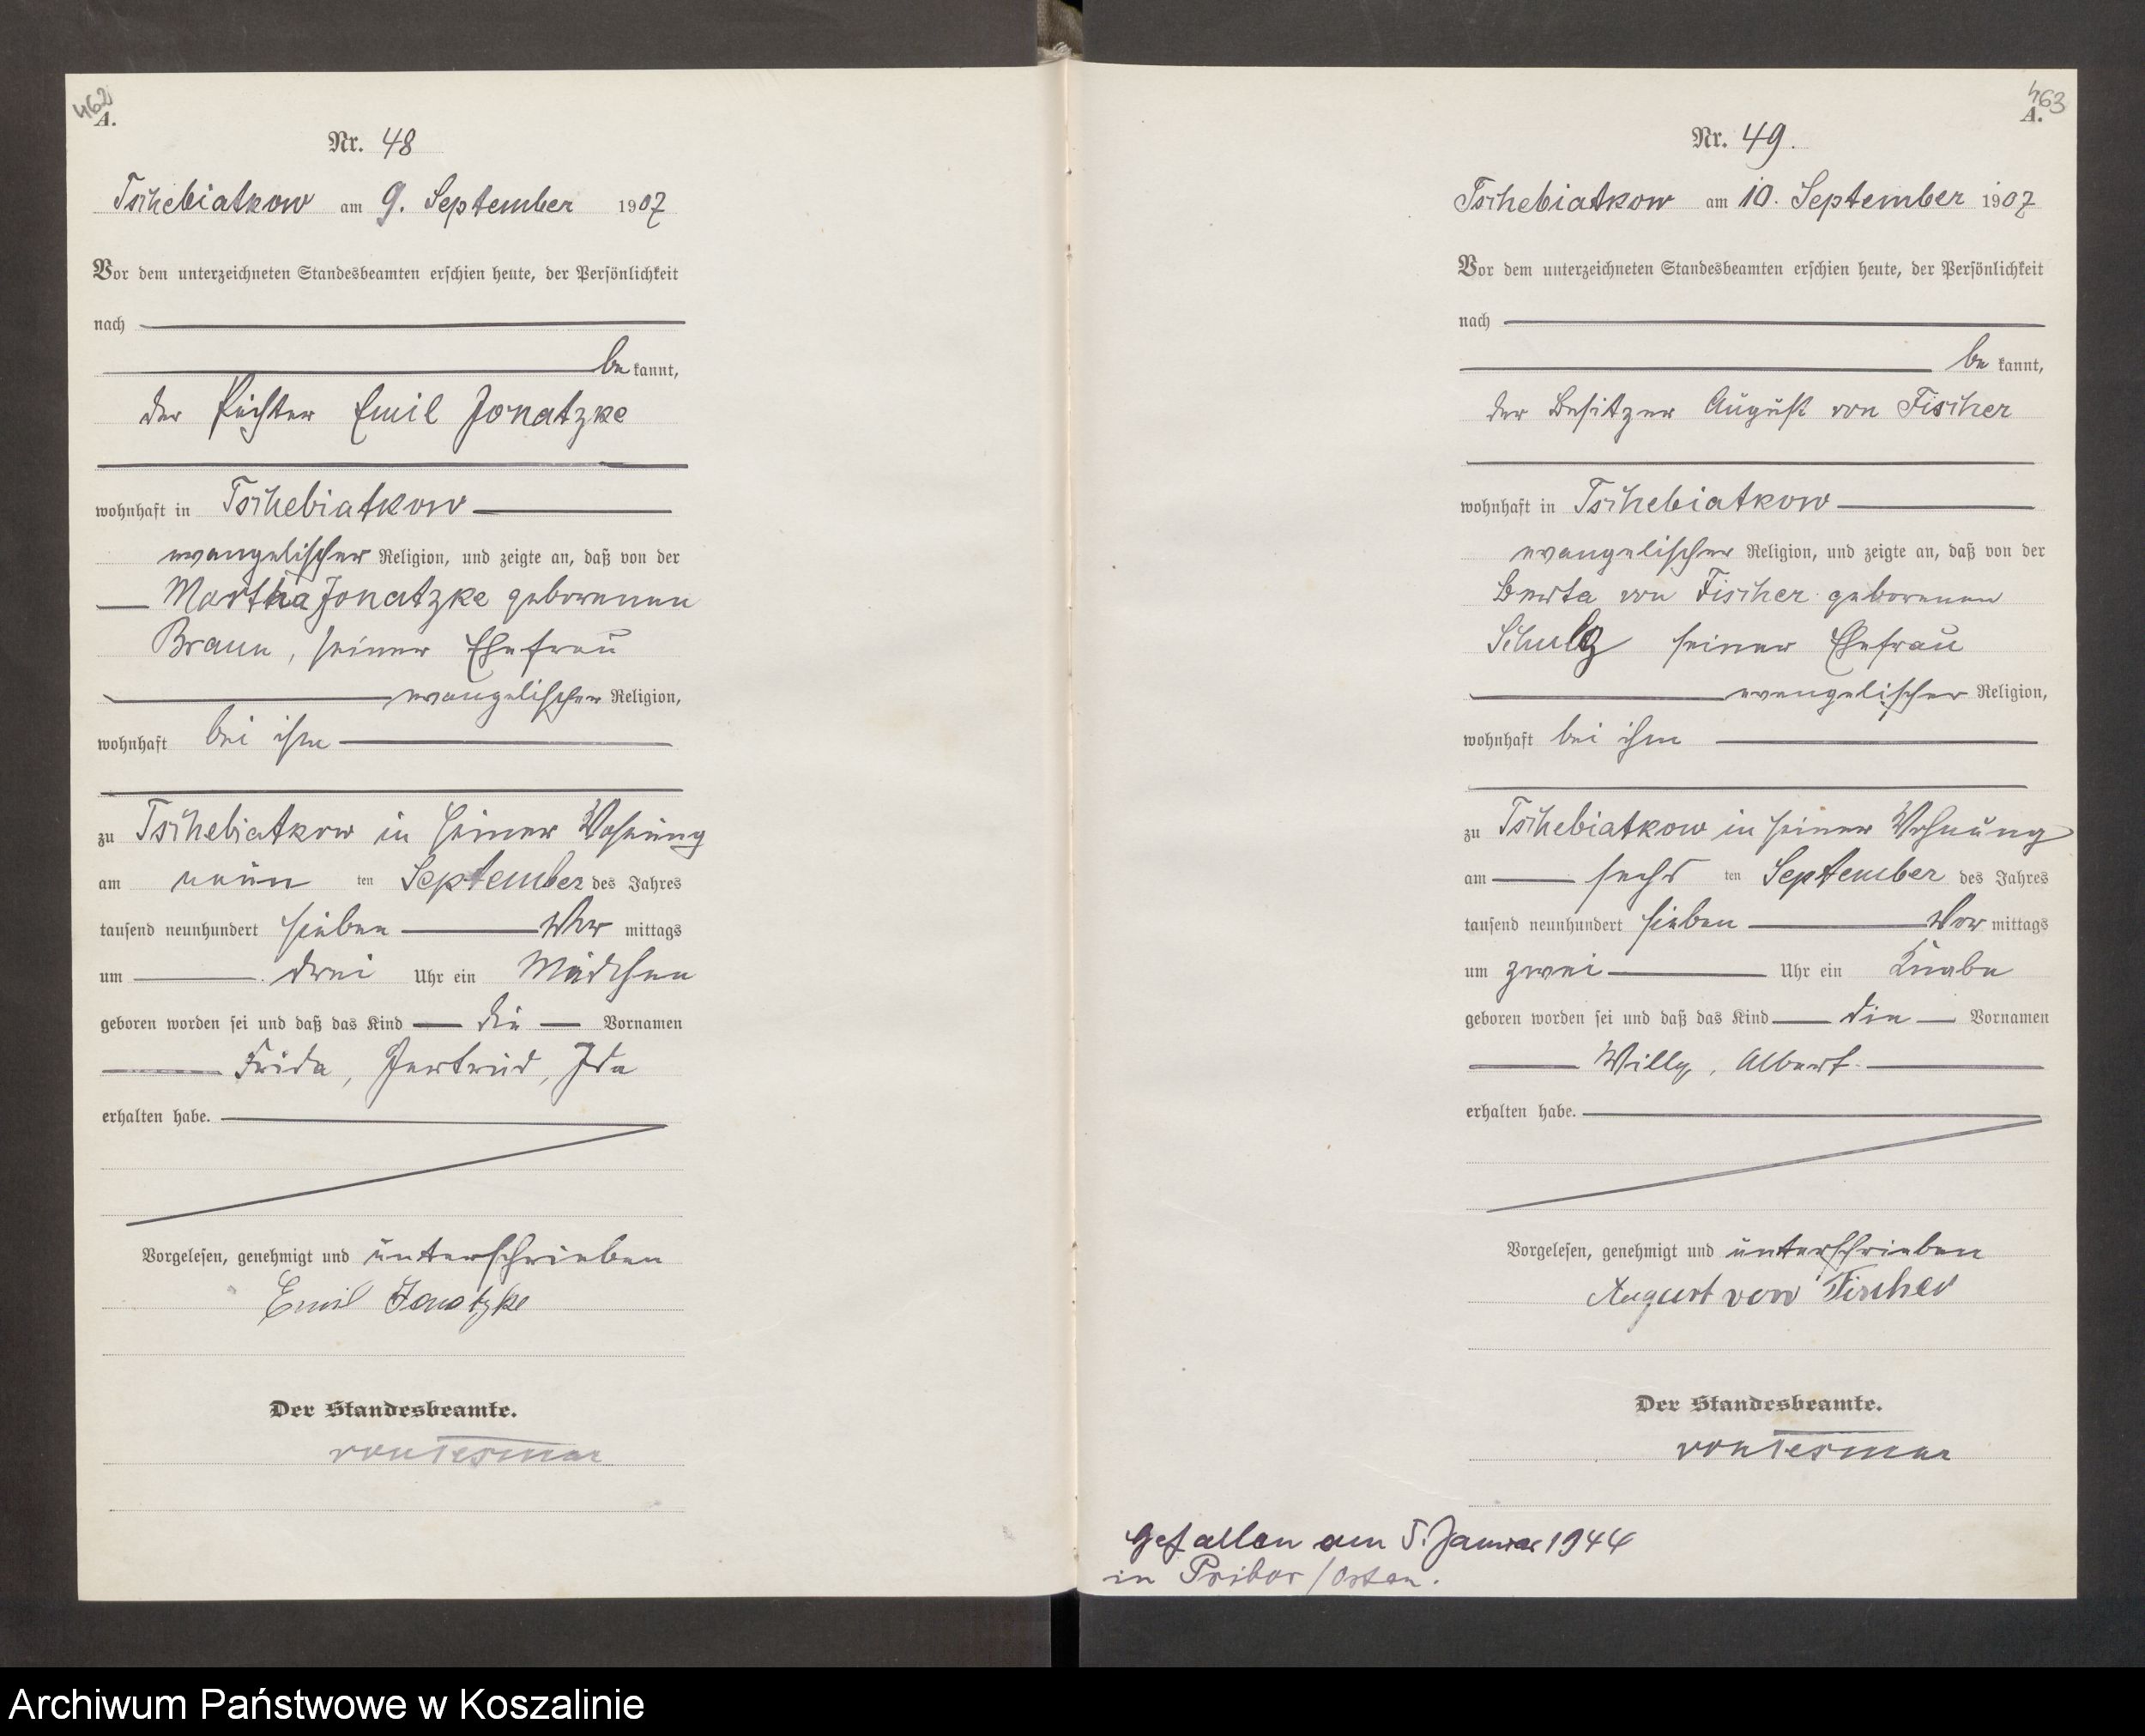 462
A.
Nr. 48
Tschebiatkow am 9. September 1907
Vor dem unterzeichneten Standesbeamten erschien heute, der Persönlichkeit
nach
be kannt,
der Pächter Emil Jonatzke
wohnhaft in Tschebiatkow
evangelischer Religion, und zeigte an, daß von der
Martha Jonatzke geborenen
Braun, seiner Ehefrau
evangelischer Religion,
wohnhaft bei ihm
zu Tschebiatkow in seiner Wohnung
am neun ten September des Jahres
tausend neunhundert sieben Vor mittags
um drei Uhr ein Mädchen
geboren worden sei und daß das Kind die Vornamen
Frida, Gertrud, Ida
erhalten habe.
Vorgelesen, genehmigt und unterschrieben
Emil Jonatzke
Der Standesbeamte.
von Tesmar
463
A.
Nr. 49.
Tschebiatkow am 10. September 1907
Vor dem unterzeichneten Standesbeamten erschien heute, der Persönlichkeit
nach
be kannt,
der Besitzer August von Fischer
wohnhaft in Tschebiatkow
evangelischer Religion, und zeigte an, daß von der
Berta von Fischer geborenen
Schulz seiner Ehefrau
evangelischer Religion,
wohnhaft bei ihm
zu Tschebiatkow in seiner Wohnung
am sechs ten September des Jahres
tausend neunhundert sieben Vor mittags
um zwei Uhr ein Knabe
geboren worden sei und daß das Kind die Vornamen
Willy, Albert
erhalten habe.
Vorgelesen, genehmigt und unterschrieben
August von Fischer
Der Standesbeamte.
von Tesmar
Gefallen am 5. Januar 1944
in Pribor / Osten.
Archiwum Państwowe w Koszalinie